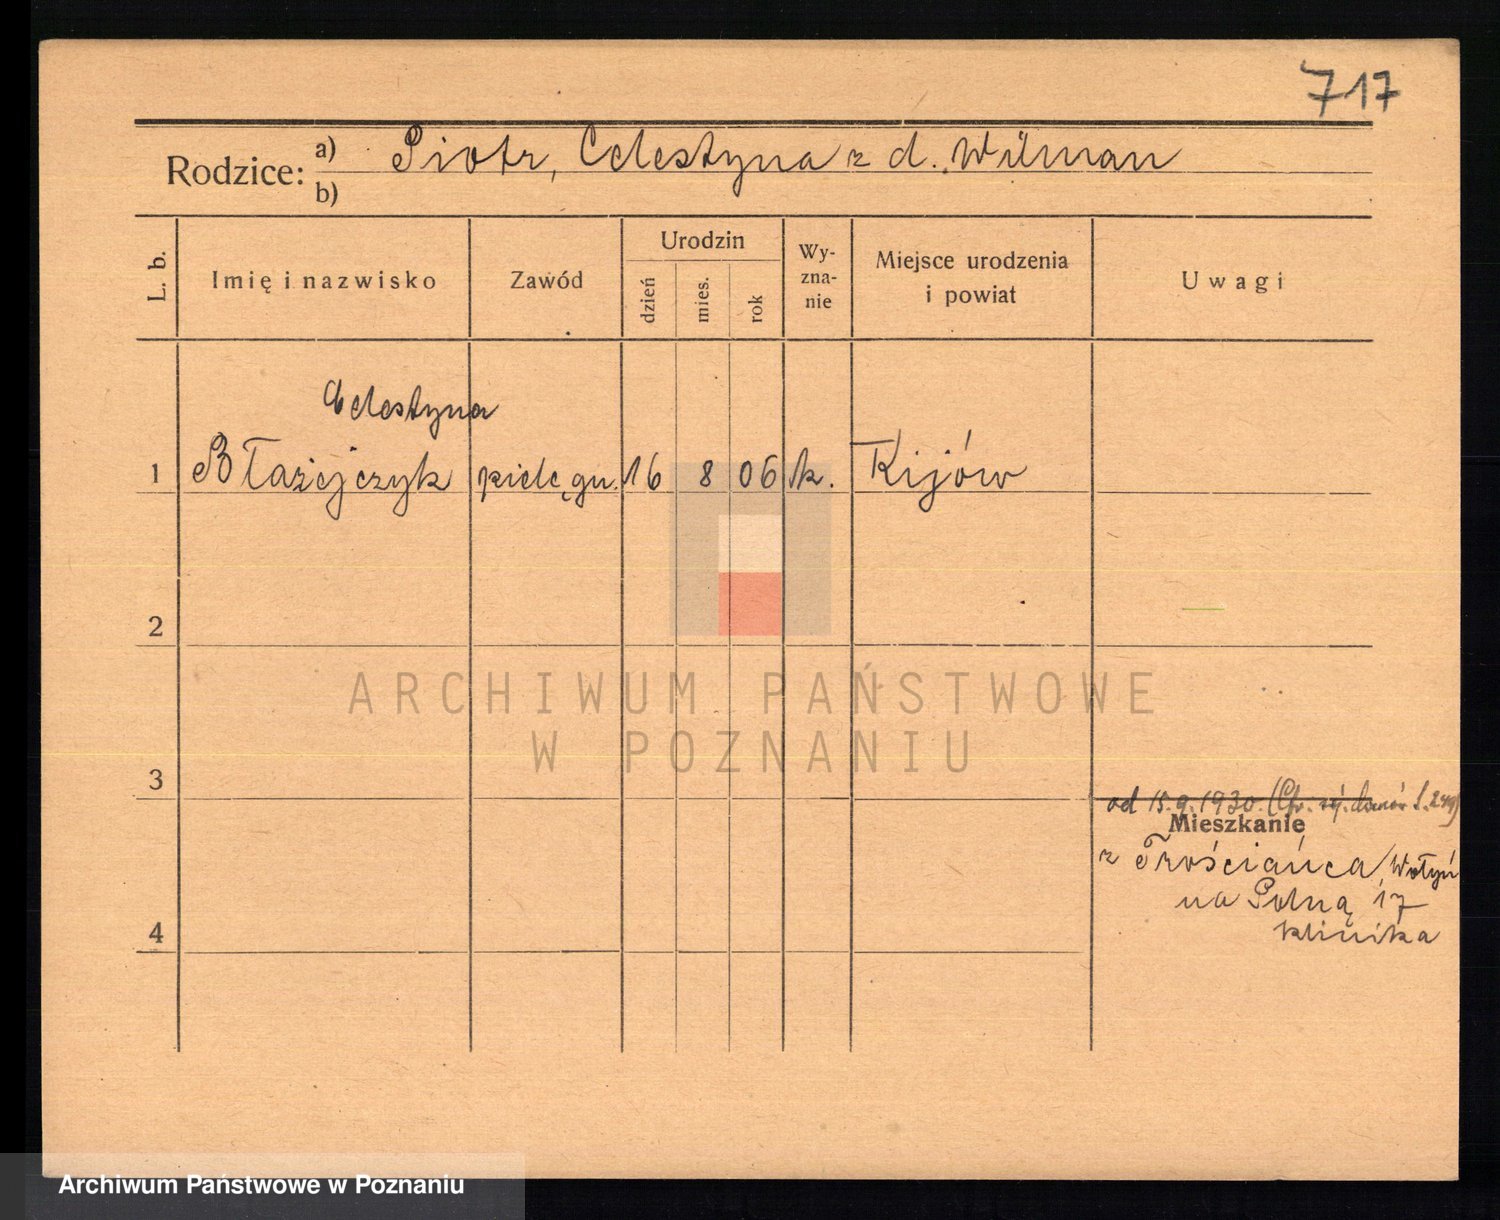 717
Rodzice: a) Piotr, Celestyna z d. Wilman
b)
L. b. Imię i nazwisko Zawód Urodzin dzień mies. rok Wyznanie Miejsce urodzenia i powiat Uwagi
Celestyna
1 Błażejczyk pielęgn. 16 8 06 k. Kijów
2
ARCHIWUM PAŃSTWOWE
W POZNANIU
3
od 15.9.1930.
Mieszkanie
z Trościańca, Wołyń
na Polną 17
klinika
4
Archiwum Państwowe w Poznaniu